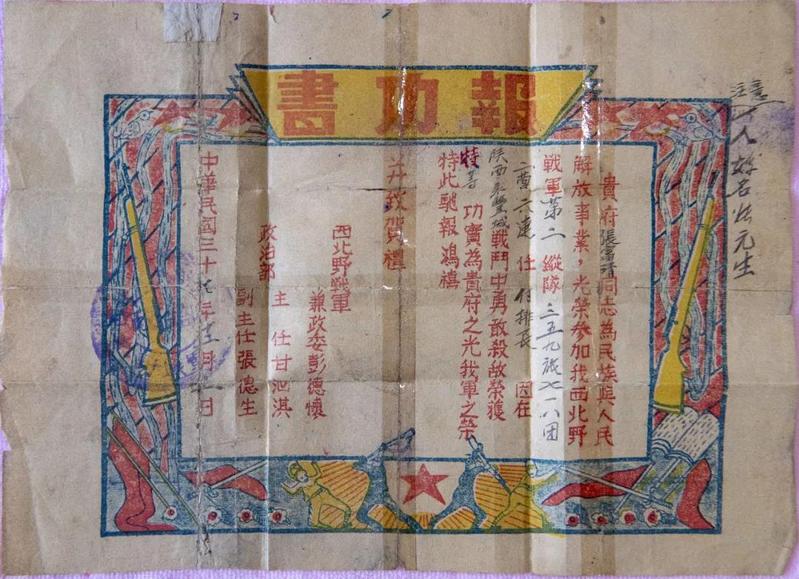 報功書
貴府張富清同志為民族與人民
解放事業，光榮參加我西北野
戰軍第二縱隊三五九旅七一八团
二营六連 任 排長 因在
陝西永豐城戰鬥中勇敢殺敵榮獲
特等 功實為貴府之光我軍之榮
特此馳報鴻禧
并致賀禮
西北野戰軍
兼政委彭德懷
政治部
主任甘泗淇
副主任張德生
中華民國三十七年十二月 日
注意
人